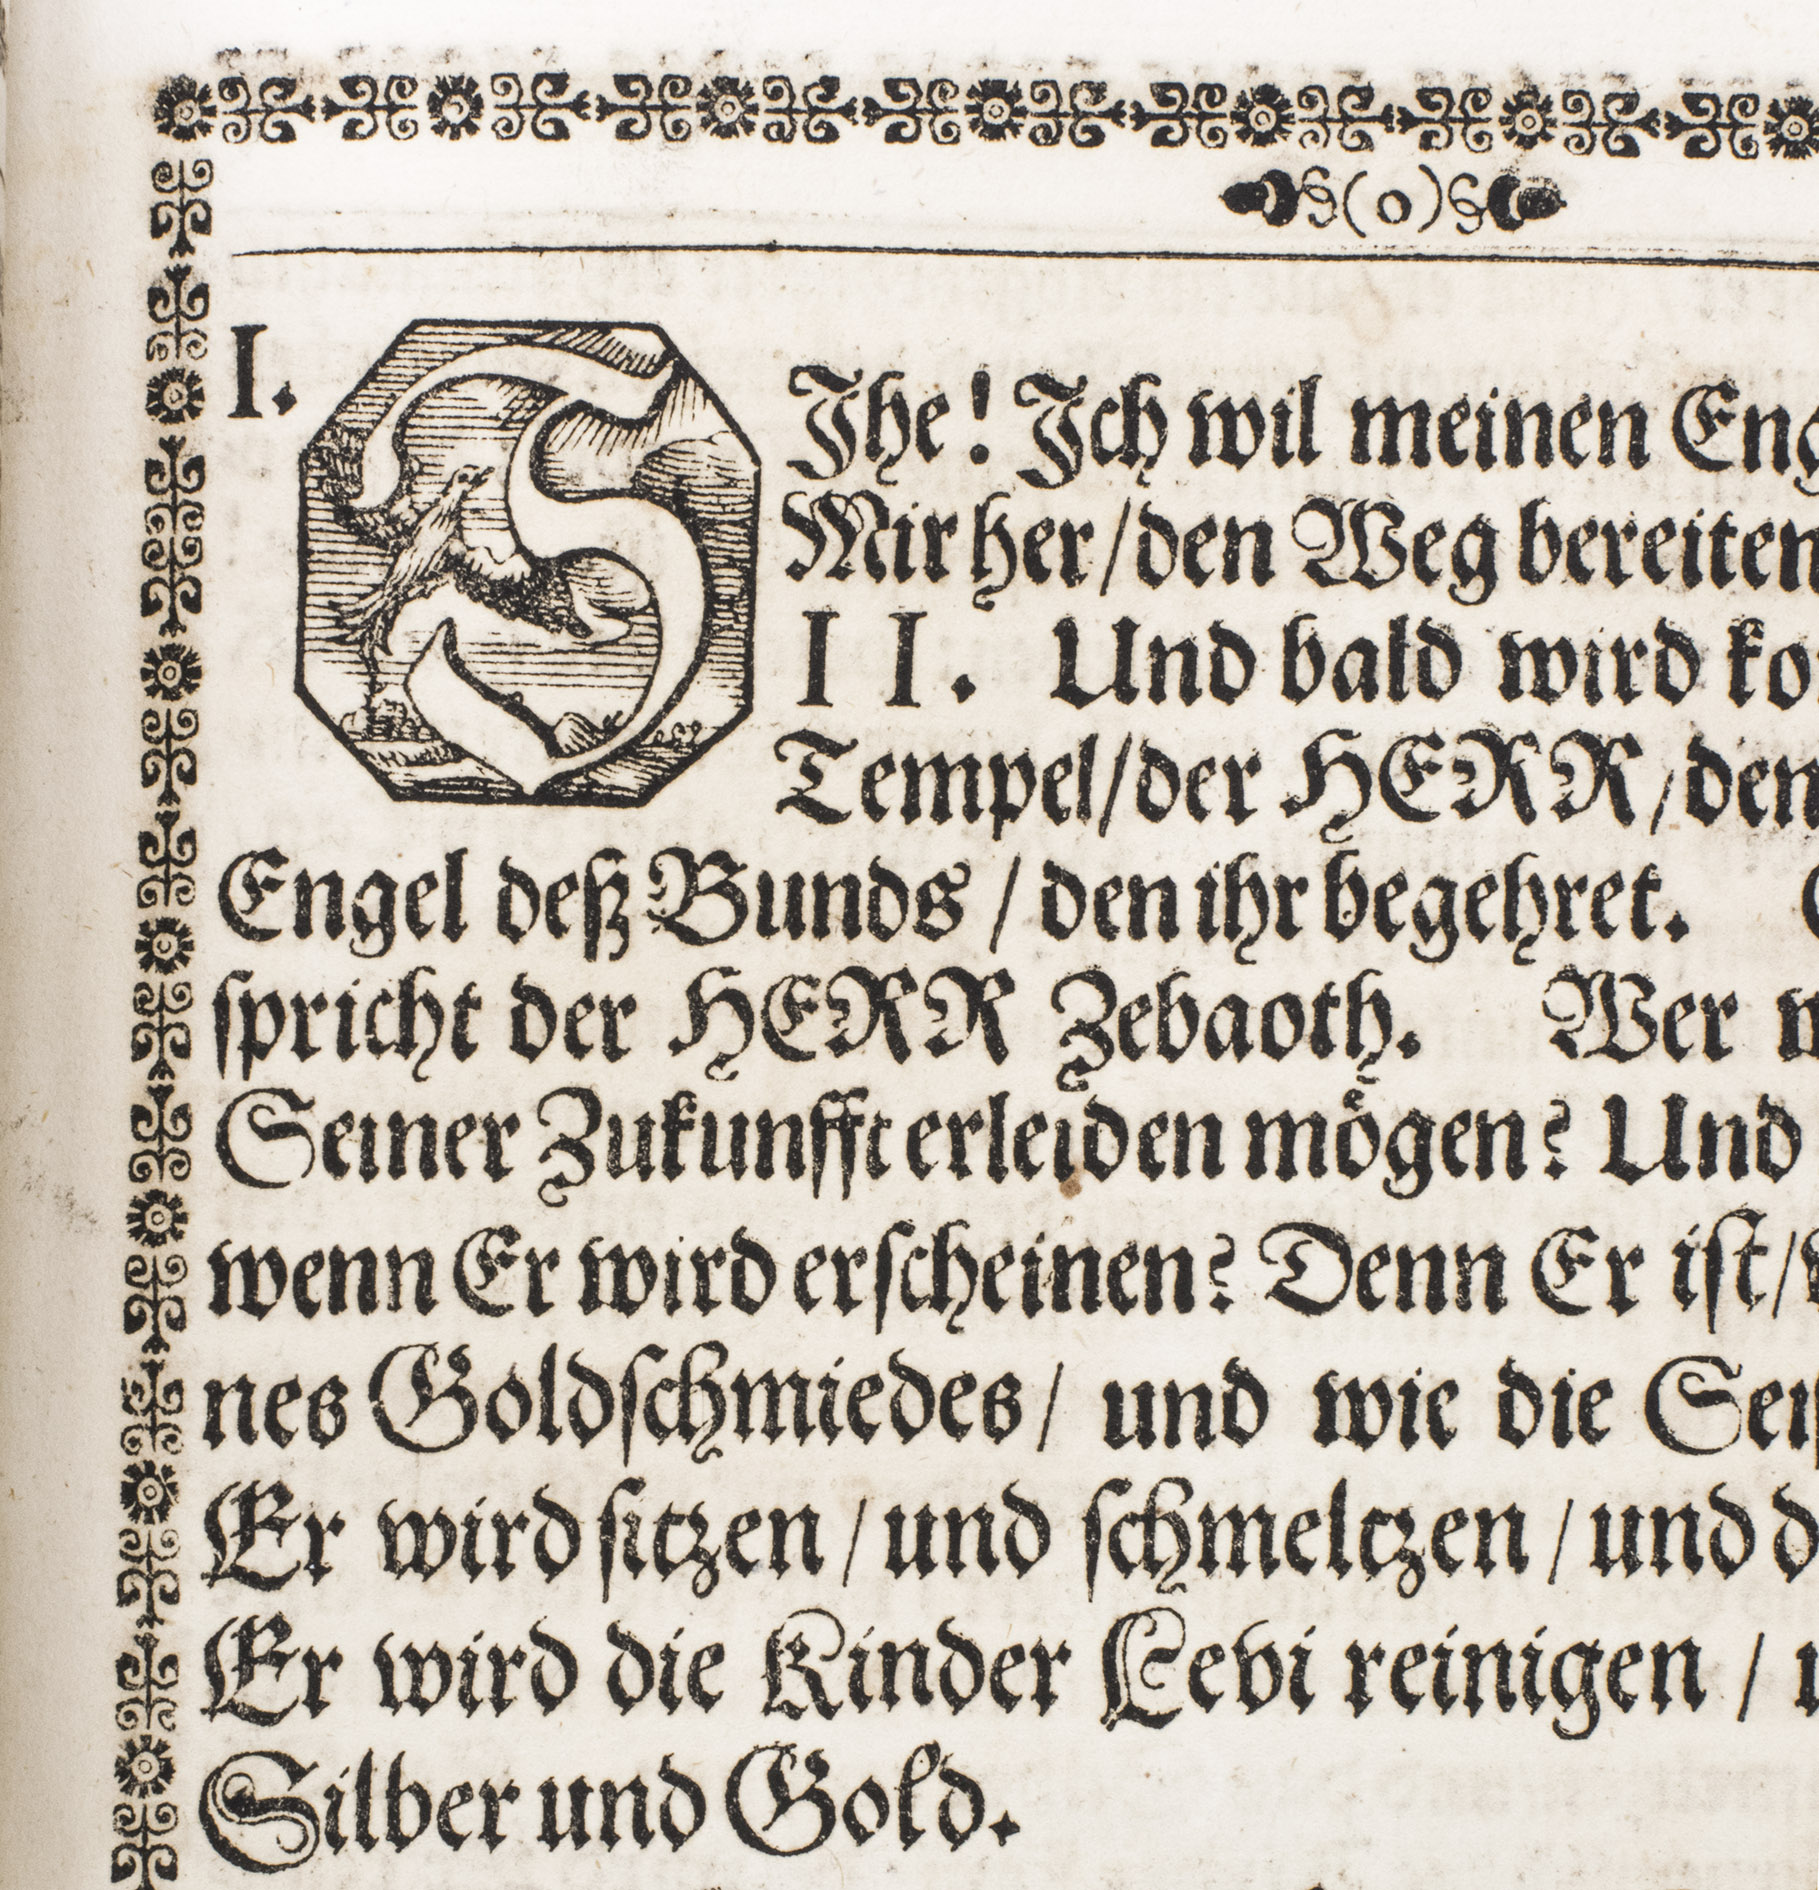 §( o )§
I. SIhe! Ich wil meinen Eng
Mir her/den Weg bereiten
II. Und bald wird ko
Tempel/der HERR/den
Engel deß Bunds / den ihr begehret.
spricht der HERR Zebaoth. Wer
Seiner Zukunfft erleiden moͤgen? Und
wenn Er wird erscheinen? Denn Er ist/
nes Goldschmiedes/ und wie die Sei
Er wird sitzen / und schmeltzen / und d
Er wird die Kinder Levi reinigen /
Silber und Gold.